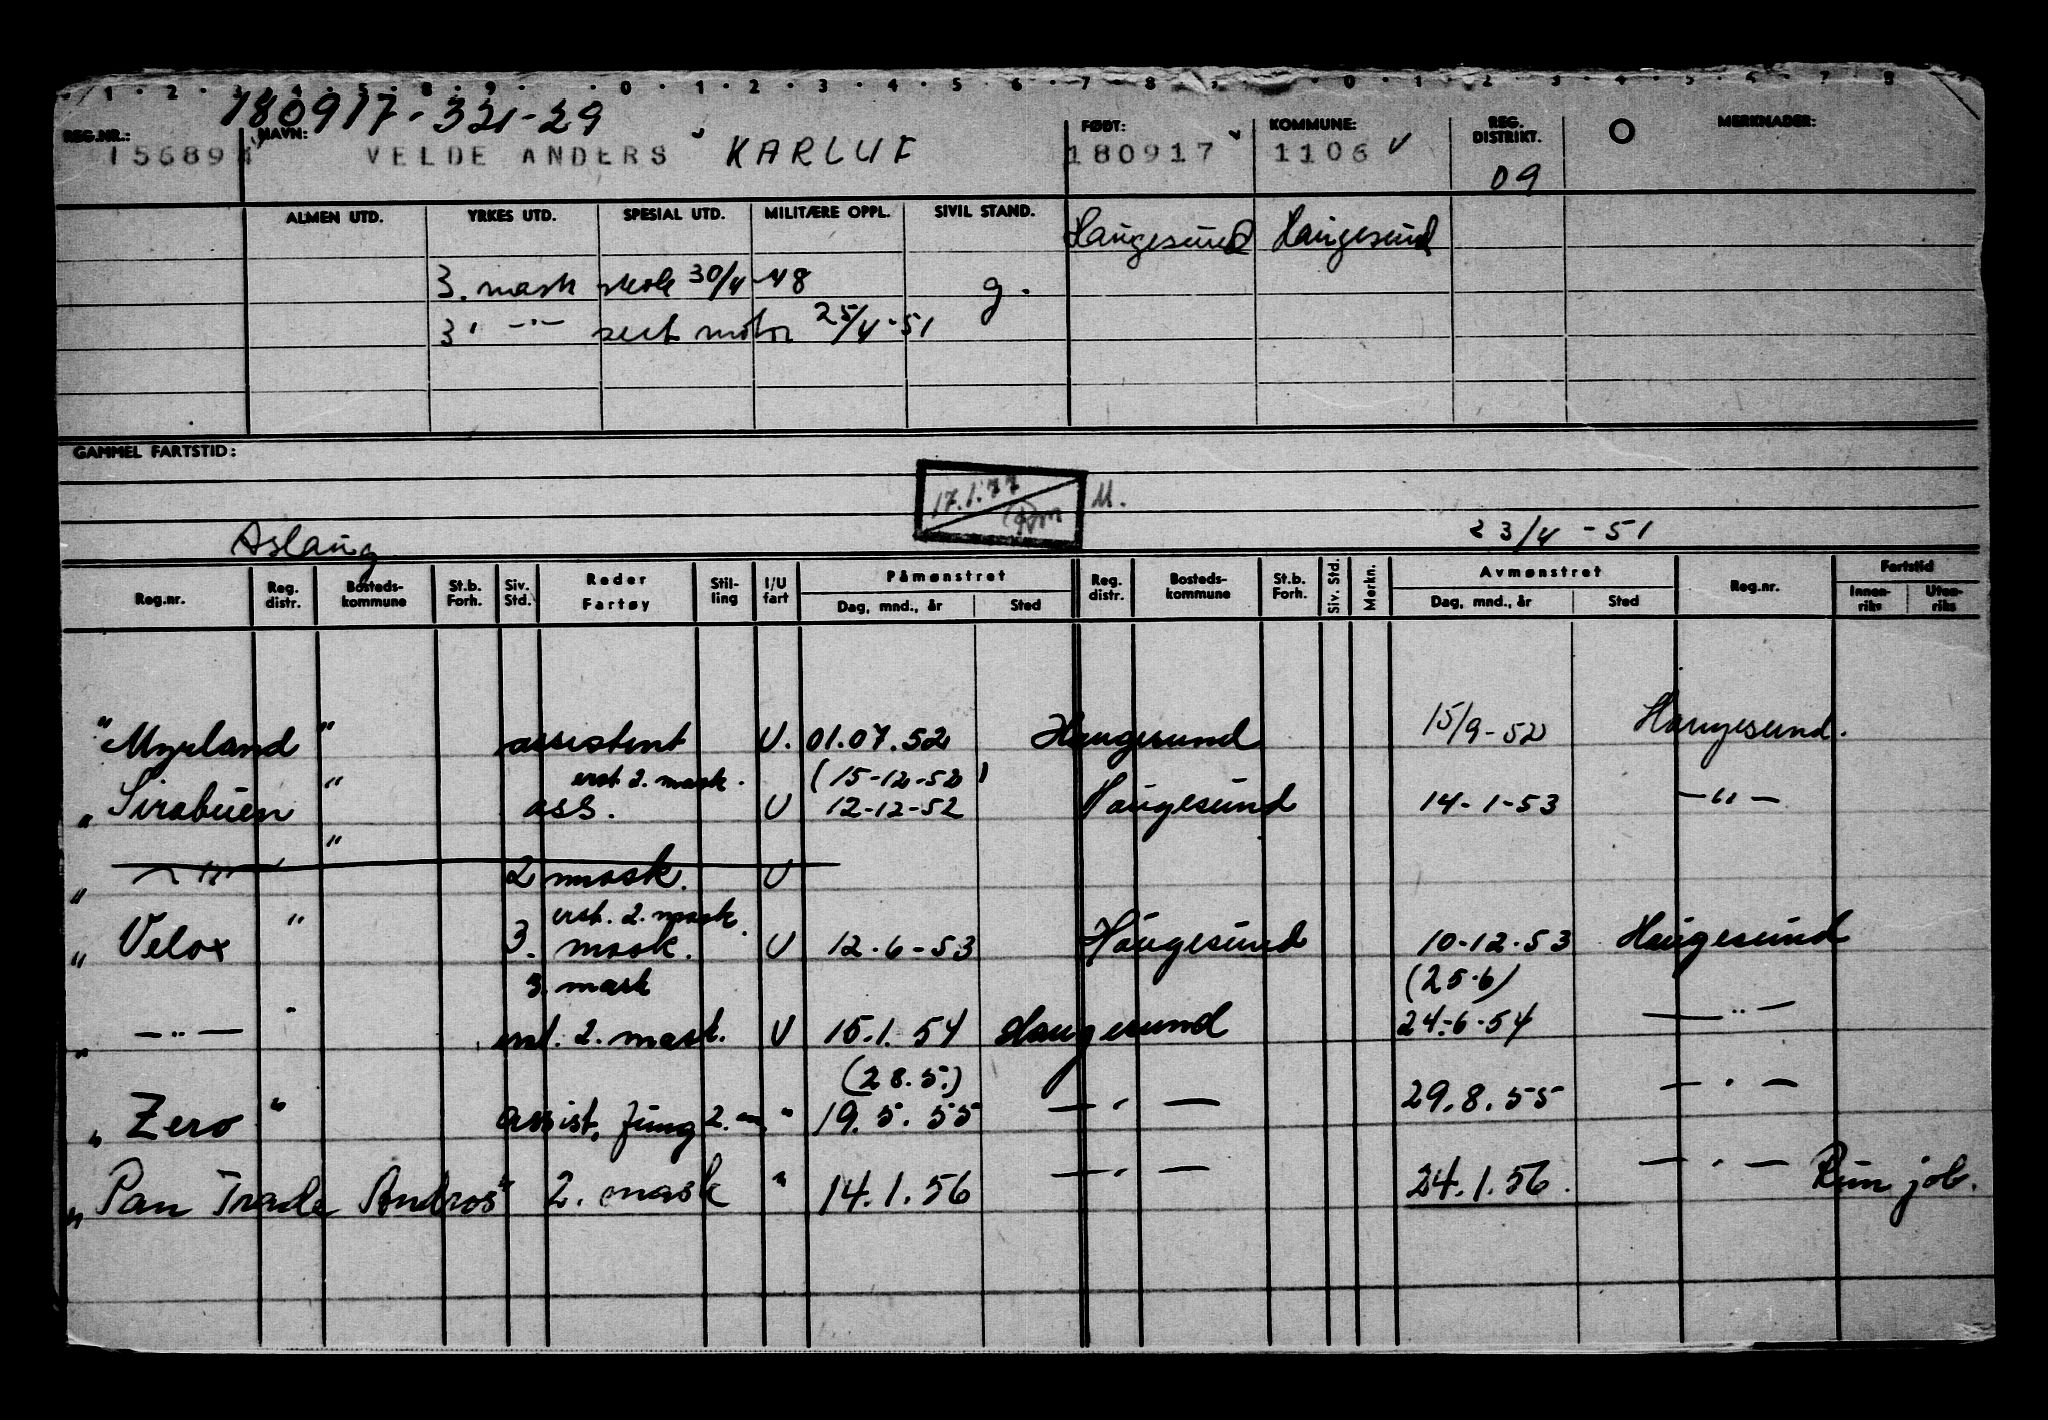 1 · 2 · 3 · 4 · 5 · 8 · 9 · 0 · 1 · 2 · 3 · 4 · 5 · 6 · 7 · 8 · 0 · 1 · 2 · 3 · 4 · 5 · 6 · 7 · 8
180917-331-29
REG.NR.: NAVN: FØDT: KOMMUNE: REG. DISTRIKT. MERKNADER:
156894 VELDE ANDERS KARLUF 180917 1106
09
ALMEN UTD. YRKES UTD. SPESIAL UTD. MILITÆRE OPPL. SIVIL STAND.
Haugesund Haugesund
3. mask skole 30/4-48 g.
3' -"- sert motor 25/4-51
GAMMEL FARTSTID:
17.1.77 M.
Aslaug 23/4-51
Reg.nr. Reg. distr. Bosteds-kommune St.b. Forh. Siv. Std. Reder Fartøy Stil-ling I/U fart Påmønstret Dag, mnd., år Sted Reg. distr. Bosteds-kommune St.b. Forh. Siv. Std. Merkn. Avmønstret Dag, mnd., år Sted Reg.nr. Fartstid Innen-riks Uten-riks
"Myrland" assistent U. 01.07.52 Haugesund 15/9-52 Haugesund.
erst 2. mask. (15-12-52)
"Sirabuen" ass. U 12-12-52 Haugesund 14-1-53 -"-
" -"- " 2 mask. U
erst. 2. mask.
"Velox" 3. mask. U 12-6-53 Haugesund 10-12-53 Haugesund
3 mask (25.6)
" -"- " erst. 2. mask. U 15.1.54 Haugesund 24-6-54 -"-
(28.5.)
"Zero" assist. fung 2. m. " 19.5.55 -"- 29.8.55 -"-
"Pan Trade Andros" 2. mask " 14.1.56 -"- 24.1.56. -"- Run job.